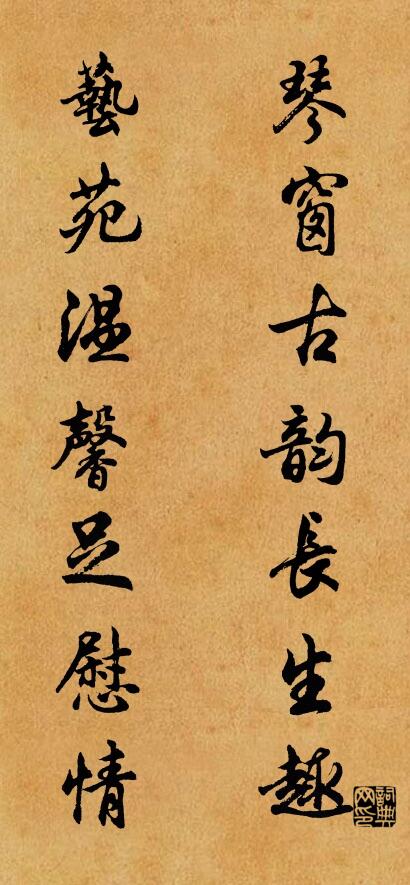 琴窗古韵長生趣
藝苑温馨足慰情
詞典網印